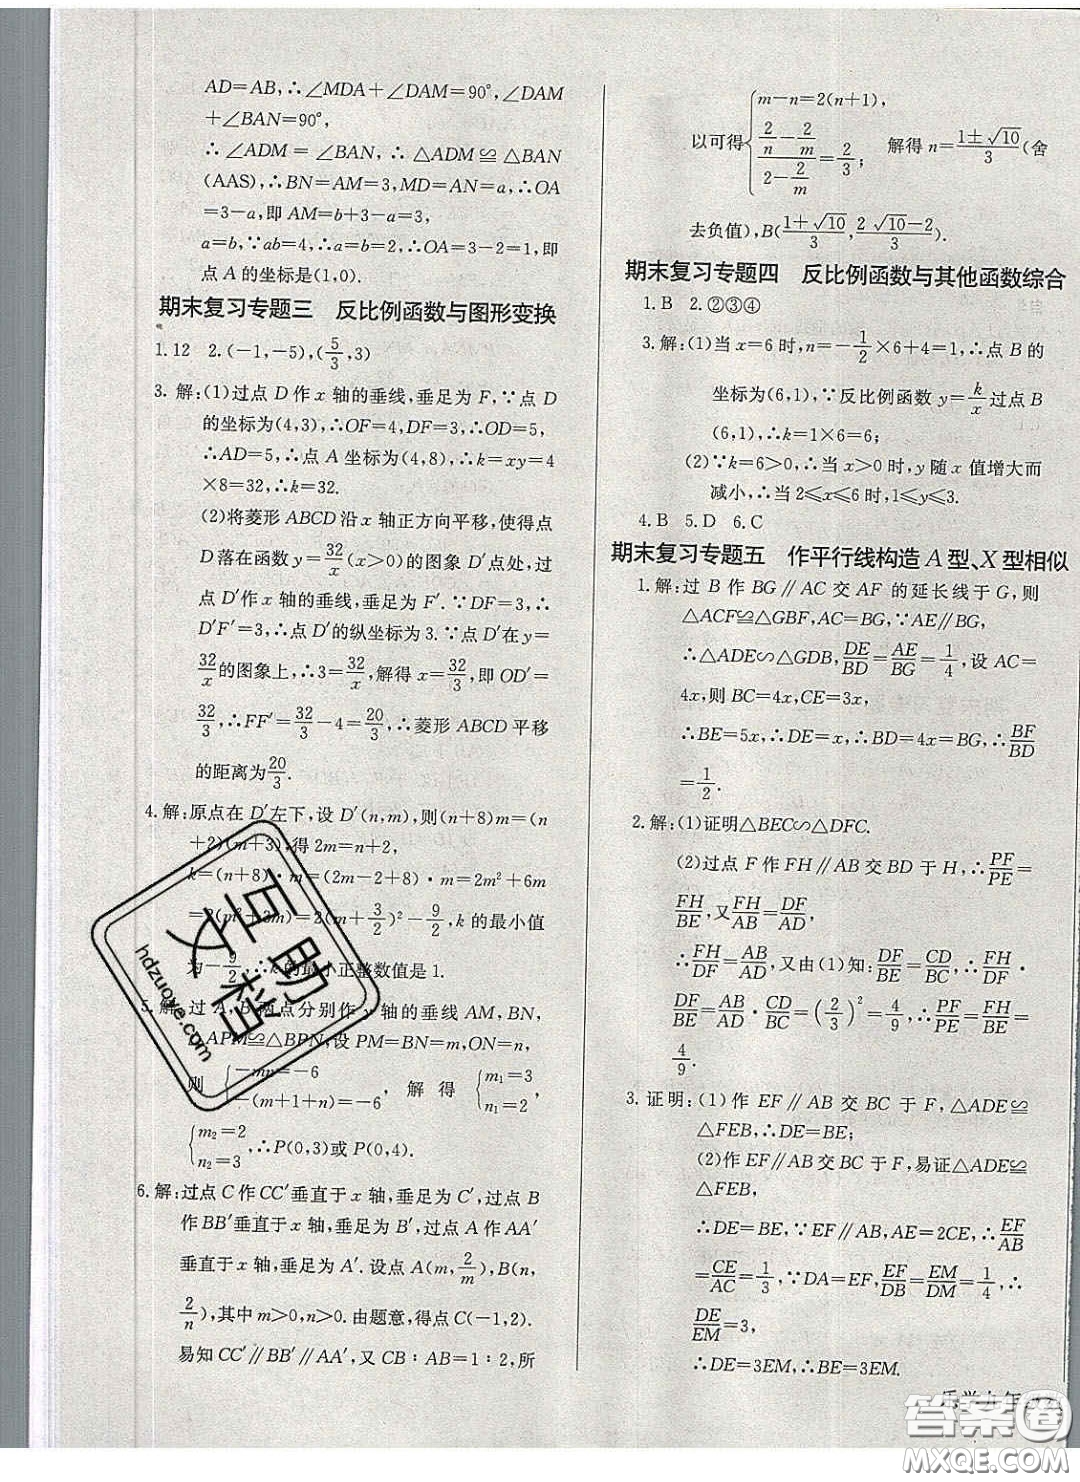 AD=AB,∴∠MDA+∠DAM=90°,∠DAM
+∠BAN=90°,
∴∠ADM=∠BAN,∴△ADM≌△BAN
(AAS),∴BN=AM=3,MD=AN=a,∴OA
=3-a,即AM=b+3-a=3,
a=b,∵ab=4,∴a=b=2,∴OA=3-2=1,即
点A的坐标是(1,0).
期末复习专题三 反比例函数与图形变换
1.12 2.(-1,-5),(5/3,3)
3.解:(1)过点D作x轴的垂线,垂足为F,∵点D
的坐标为(4,3),∴OF=4,DF=3,∴OD=5,
∴AD=5,∴点A坐标为(4,8),∴k=xy=4
×8=32,∴k=32.
(2)将菱形ABCD沿x轴正方向平移,使得点
D落在函数y=32/x(x>0)的图象D′点处,过
点D′作x轴的垂线,垂足为F′.∵DF=3,∴
D′F′=3,∴点D′的纵坐标为3.∵点D′在y=
32/x的图象上,∴3=32/x,解得x=32/3,即OD′=
32/3,∴FF′=32/3-4=20/3,∴菱形ABCD平移
的距离为20/3.
4.解:原点在D′左下,设D′(n,m),则(n+8)m=(n
+2)(m+3),得2m=n+2,
k=(n+8)·m=(2m-2+8)·m=2m²+6m
=2(m²+3m)=2(m+3/2)²-9/2,k的最小值
为-9/2,∴k的最小正整数值是1.
5.解:过A,B两点分别作y轴的垂线AM,BN,
△APM≌△BPN,设PM=BN=m,ON=n,
则{-mn=-6 -(m+1+n)=-6,解得{m₁=3 n₁=2
{m₂=2 n₂=3,∴P(0,3)或P(0,4).
6.解:过点C作CC′垂直于x轴,垂足为C′,过点B
作BB′垂直于x轴,垂足为B′,过点A作AA′
垂直于x轴,垂足为A′.设点A(m,2/m),B(n,
2/n),其中m>0,n>0.由题意,得点C(-1,2).
易知CC′∥BB′∥AA′,又CB∶AB=1∶2,所
以可得{m-n=2(n+1), (2/n-2/m)/(2-2/m)=2/3; 解得n=(1±√10)/3(舍
去负值),B((1+√10)/3,(2√10-2)/3).
期末复习专题四 反比例函数与其他函数综合
1.B 2.②③④
3.解:(1)当x=6时,n=-1/2×6+4=1,∴点B的
坐标为(6,1),∵反比例函数y=k/x过点B
(6,1),∴k=1×6=6;
(2)∵k=6>0,∴当x>0时,y随x值增大而
减小,∴当2≤x≤6时,1≤y≤3.
4.B 5.D 6.C
期末复习专题五 作平行线构造A型、X型相似
1.解:过B作BG∥AC交AF的延长线于G,则
△ACF≌△GBF,AC=BG,∵AE∥BG,
∴△ADE∽△GDB,DE/BD=AE/BG=1/4,设AC=
4x,则BC=4x,CE=3x,
∴BE=5x,∴DE=x,∴BD=4x=BG,∴BF/BD
=1/2.
2.解:(1)证明△BEC∽△DFC.
(2)过点F作FH∥AB交BD于H,∴PF/PE=
FH/BE,又FH/AB=DF/AD,
∴FH/DF=AB/AD,又由(1)知:DF/BE=CD/BC,∴FH/DF·
DF/BE=AB/AD·CD/BC=(2/3)²=4/9,∴PF/PE=FH/BE=
4/9.
3.证明:(1)作EF∥AB交BC于F,△ADE≌
△FEB,∴DE=BE;
(2)作EF∥AB交BC于F,易证△ADE≌
△FEB,
∴DE=BE,∵EF∥AB,AE=2CE,∴EF/AB
=CE/AC=1/3,∵DA=EF,EF/DB=EM/DM=1/4,∴
DE/EM=3,
∴DE=3EM,∴BE=3EM.
乐学九年
互助文档
hdzuoye.com
答案圈
MXQE.COM